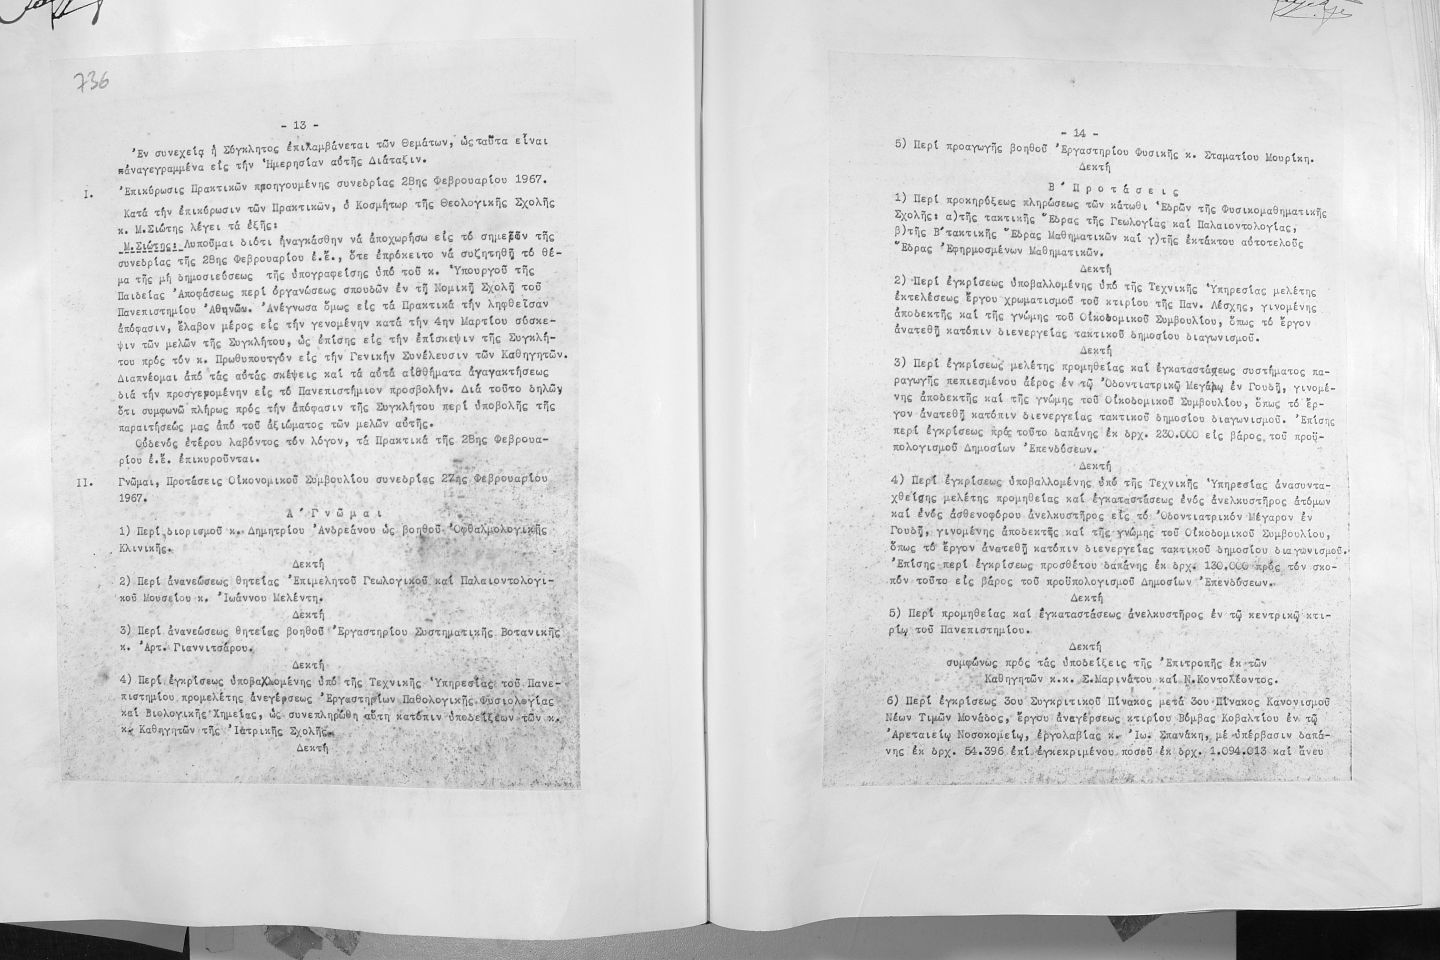 736
- 13 -
Ἐν συνεχείᾳ ἡ Σύγκλητος ἐπιλαμβάνεται τῶν Θεμάτων, ὡς ταῦτα εἶναι
ἀναγεγραμμένα εἰς τήν Ἡμερησίαν αὐτῆς Διάταξιν.
I. Ἐπικύρωσις Πρακτικῶν προηγουμένης συνεδρίας 28ης Φεβρουαρίου 1967.
Κατά τήν ἐπικύρωσιν τῶν Πρακτικῶν, ὁ Κοσμήτωρ τῆς Θεολογικῆς Σχολῆς
κ. Μ.Σιώτης λέγει τά ἑξῆς:
Μ.Σιώτης: Λυποῦμαι διότι ἠναγκάσθην νά ἀποχωρήσω εἰς τό σημεῖον τῆς
συνεδρίας τῆς 28ης Φεβρουαρίου ἐ.ἔ., ὅτε ἐπρόκειτο νά συζητηθῇ τό θέ-
μα τῆς μή δημοσιεύσεως τῆς ὑπογραφείσης ὑπό τοῦ κ. Ὑπουργοῦ τῆς
Παιδείας Ἀποφάσεως περί ὀργανώσεως σπουδῶν ἐν τῇ Νομικῇ Σχολῇ τοῦ
Πανεπιστημίου Ἀθηνῶν. Ἀνέγνωσα ὅμως εἰς τά Πρακτικά τήν ληφθεῖσαν
ἀπόφασιν, ἔλαβον μέρος εἰς τήν γενομένην κατά τήν 4ην Μαρτίου σύσκε-
ψιν τῶν μελῶν τῆς Συγκλήτου, ὡς ἐπίσης εἰς τήν ἐπίσκεψιν τῆς Συγκλή-
του πρός τόν κ. Πρωθυπουτγόν εἰς τήν Γενικήν Συνέλευσιν τῶν Καθηγητῶν.
Διαπνέομαι ἀπό τάς αὐτάς σκέψεις καί τά αὐτά αἰσθήματα ἀγαγακτήσεως
διά τήν προσγενομένην εἰς τό Πανεπιστήμιον προσβολήν. Διά τοῦτο δηλῶ,
ὅτι συμφωνῶ πλήρως πρός τήν ἀπόφασιν τῆς Συγκλήτου περί ὑποβολῆς τῆς
παραιτήσεώς μας ἀπό τοῦ ἀξιώματος τῶν μελῶν αὐτῆς.
Οὐδενός ἑτέρου λαβόντος τόν λόγον, τά Πρακτικά τῆς 28ης Φεβρουα-
ρίου ἐ.ἔ. ἐπικυροῦνται.
II. Γνῶμαι, Προτάσεις Οἰκονομικοῦ Συμβουλίου συνεδρίας 27ης Φεβρουαρίου
1967.
Α´ Γ ν ῶ μ α ι
1) Περί διορισμοῦ κ. Δημητρίου Ἀνδρεάνου ὡς βοηθοῦ Ὀφθαλμολογικῆς
Κλινικῆς.
Δεκτή
2) Περί ἀνανεώσεως θητείας Ἐπιμελητοῦ Γεωλογικοῦ καί Παλαιοντολογι-
κοῦ Μουσείου κ. Ἰωάννου Μελέντη.
Δεκτή
3) Περί ἀνανεώσεως θητείας βοηθοῦ Ἐργαστηρίου Συστηματικῆς Βοτανικῆς
κ. Ἀρτ. Γιαννιτσάρου.
Δεκτή
4) Περί ἐγκρίσεως ὑποβαλλομένης ὑπό τῆς Τεχνικῆς Ὑπηρεσίας τοῦ Πανε-
πιστημίου προμελέτης ἀνεγέρσεως Ἐργαστηρίων Παθολογικῆς Φυσιολογίας
καί Βιολογικῆς Χημείας, ὡς συνεπληρώθη αὕτη κατόπιν ὑποδείξεων τῶν κ.
κ. Καθηγητῶν τῆς Ἰατρικῆς Σχολῆς.
Δεκτή
- 14 -
5) Περί προαγωγῆς βοηθοῦ Ἐργαστηρίου Φυσικῆς κ. Σταματίου Μουρίκη.
Δεκτή
Β´ Π ρ ο τ ά σ ε ι ς
1) Περί προκηρύξεως πληρώσεως τῶν κάτωθι Ἑδρῶν τῆς Φυσικομαθηματικῆς
Σχολῆς: α)τῆς τακτικῆς Ἕδρας τῆς Γεωλογίας καί Παλαιοντολογίας,
β)τῆς Β´τακτικῆς Ἕδρας Μαθηματικῶν καί γ)τῆς ἐκτάκτου αὐτοτελοῦς
Ἕδρας Ἐφηρμοσμένων Μαθηματικῶν.
Δεκτή
2) Περί ἐγκρίσεως ὑποβαλλομένης ὑπό τῆς Τεχνικῆς Ὑπηρεσίας μελέτης
ἐκτελέσεως ἔργου χρωματισμοῦ τοῦ κτιρίου τῆς Παν. Λέσχης, γινομένης
ἀποδεκτῆς καί τῆς γνώμης τοῦ Οἰκοδομικοῦ Συμβουλίου, ὅπως τό ἔργον
ἀνατεθῇ κατόπιν διενεργείας τακτικοῦ δημοσίου διαγωνισμοῦ.
Δεκτή
3) Περί ἐγκρίσεως μελέτης προμηθείας καί ἐγκαταστάσεως συστήματος πα-
ραγωγῆς πεπιεσμένου ἀέρος ἐν τῷ Ὀδοντιατρικῷ Μεγάρῳ ἐν Γουδῇ, γινομέ-
νης ἀποδεκτῆς καί τῆς γνώμης τοῦ Οἰκοδομικοῦ Συμβουλίου, ὅπως τό ἔρ-
γον ἀνατεθῇ κατόπιν διενεργείας τακτικοῦ δημοσίου διαγωνισμοῦ. Ἐπίσης
περί ἐγκρίσεως πρός τοῦτο δαπάνης ἐκ δρχ. 230.000 εἰς βάρος τοῦ προϋ-
πολογισμοῦ Δημοσίων Ἐπενδύσεων.
Δεκτή
4) Περί ἐγκρίσεως ὑποβαλλομένης ὑπό τῆς Τεχνικῆς Ὑπηρεσίας ἀνασυντα-
χθείσης μελέτης προμηθείας καί ἐγκαταστάσεως ἑνός ἀνελκυστῆρος ἀτόμων
καί ἑνός ἀσθενοφόρου ἀνελκυστῆρος εἰς τό Ὀδοντιατρικόν Μέγαρον ἐν
Γουδῇ, γινομένης ἀποδεκτῆς καί τῆς γνώμης τοῦ Οἰκοδομικοῦ Συμβουλίου,
ὅπως τό ἔργον ἀνατεθῇ κατόπιν διενεργείας τακτικοῦ δημοσίου διαγωνισμοῦ.
Ἐπίσης περί ἐγκρίσεως προσθέτου δαπάνης ἐκ δρχ. 130.000 πρός τόν σκο-
πόν τοῦτο εἰς βάρος τοῦ προϋπολογισμοῦ Δημοσίων Ἐπενδύσεων.
Δεκτή
5) Περί προμηθείας καί ἐγκαταστάσεως ἀνελκυστῆρος ἐν τῷ κεντρικῷ κτι-
ρίῳ τοῦ Πανεπιστημίου.
Δεκτή
συμφώνως πρός τάς ὑποδείξεις τῆς Ἐπιτροπῆς ἐκ τῶν
Καθηγητῶν κ.κ. Σ.Μαρινάτου καί Ν.Κοντολέοντος.
6) Περί ἐγκρίσεως 3ου Συγκριτικοῦ Πίνακος μετά 3ου Πίνακος Κανονισμοῦ
Νέων Τιμῶν Μονάδος, ἔργου ἀνεγέρσεως κτιρίου Βόμβας Κοβαλτίου ἐν τῷ
Ἀρεταιείῳ Νοσοκομείῳ, ἐργολαβίας κ. Ἰω. Σπανάκη, μέ ὑπέρβασιν δαπά-
νης ἐκ δρχ. 54.396 ἐπί ἐγκεκριμένου ποσοῦ ἐκ δρχ. 1.094.013 καί ἄνευ